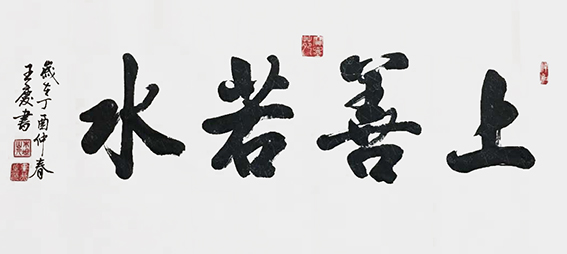 上善若水
歲在丁酉仲春
王慶書